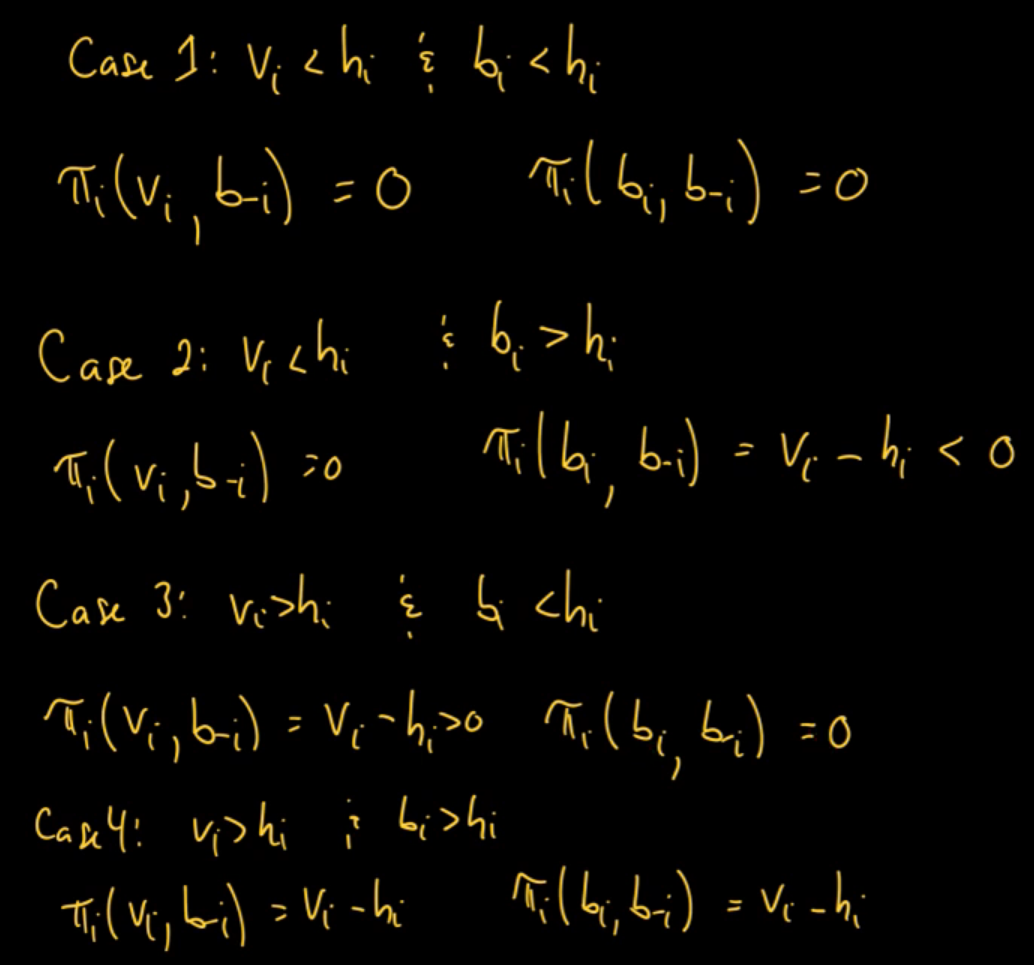 Case 1: vᵢ < hᵢ & bᵢ < hᵢ
πᵢ(vᵢ, b₋ᵢ) = 0 πᵢ(bᵢ, b₋ᵢ) = 0
Case 2: vᵢ < hᵢ & bᵢ > hᵢ
πᵢ(vᵢ, b₋ᵢ) = 0 πᵢ(bᵢ, b₋ᵢ) = vᵢ - hᵢ < 0
Case 3: vᵢ > hᵢ & bᵢ < hᵢ
πᵢ(vᵢ, b₋ᵢ) = vᵢ - hᵢ > 0 πᵢ(bᵢ, b₋ᵢ) = 0
Case 4: vᵢ > hᵢ & bᵢ > hᵢ
πᵢ(vᵢ, b₋ᵢ) = vᵢ - hᵢ πᵢ(bᵢ, b₋ᵢ) = vᵢ - hᵢ